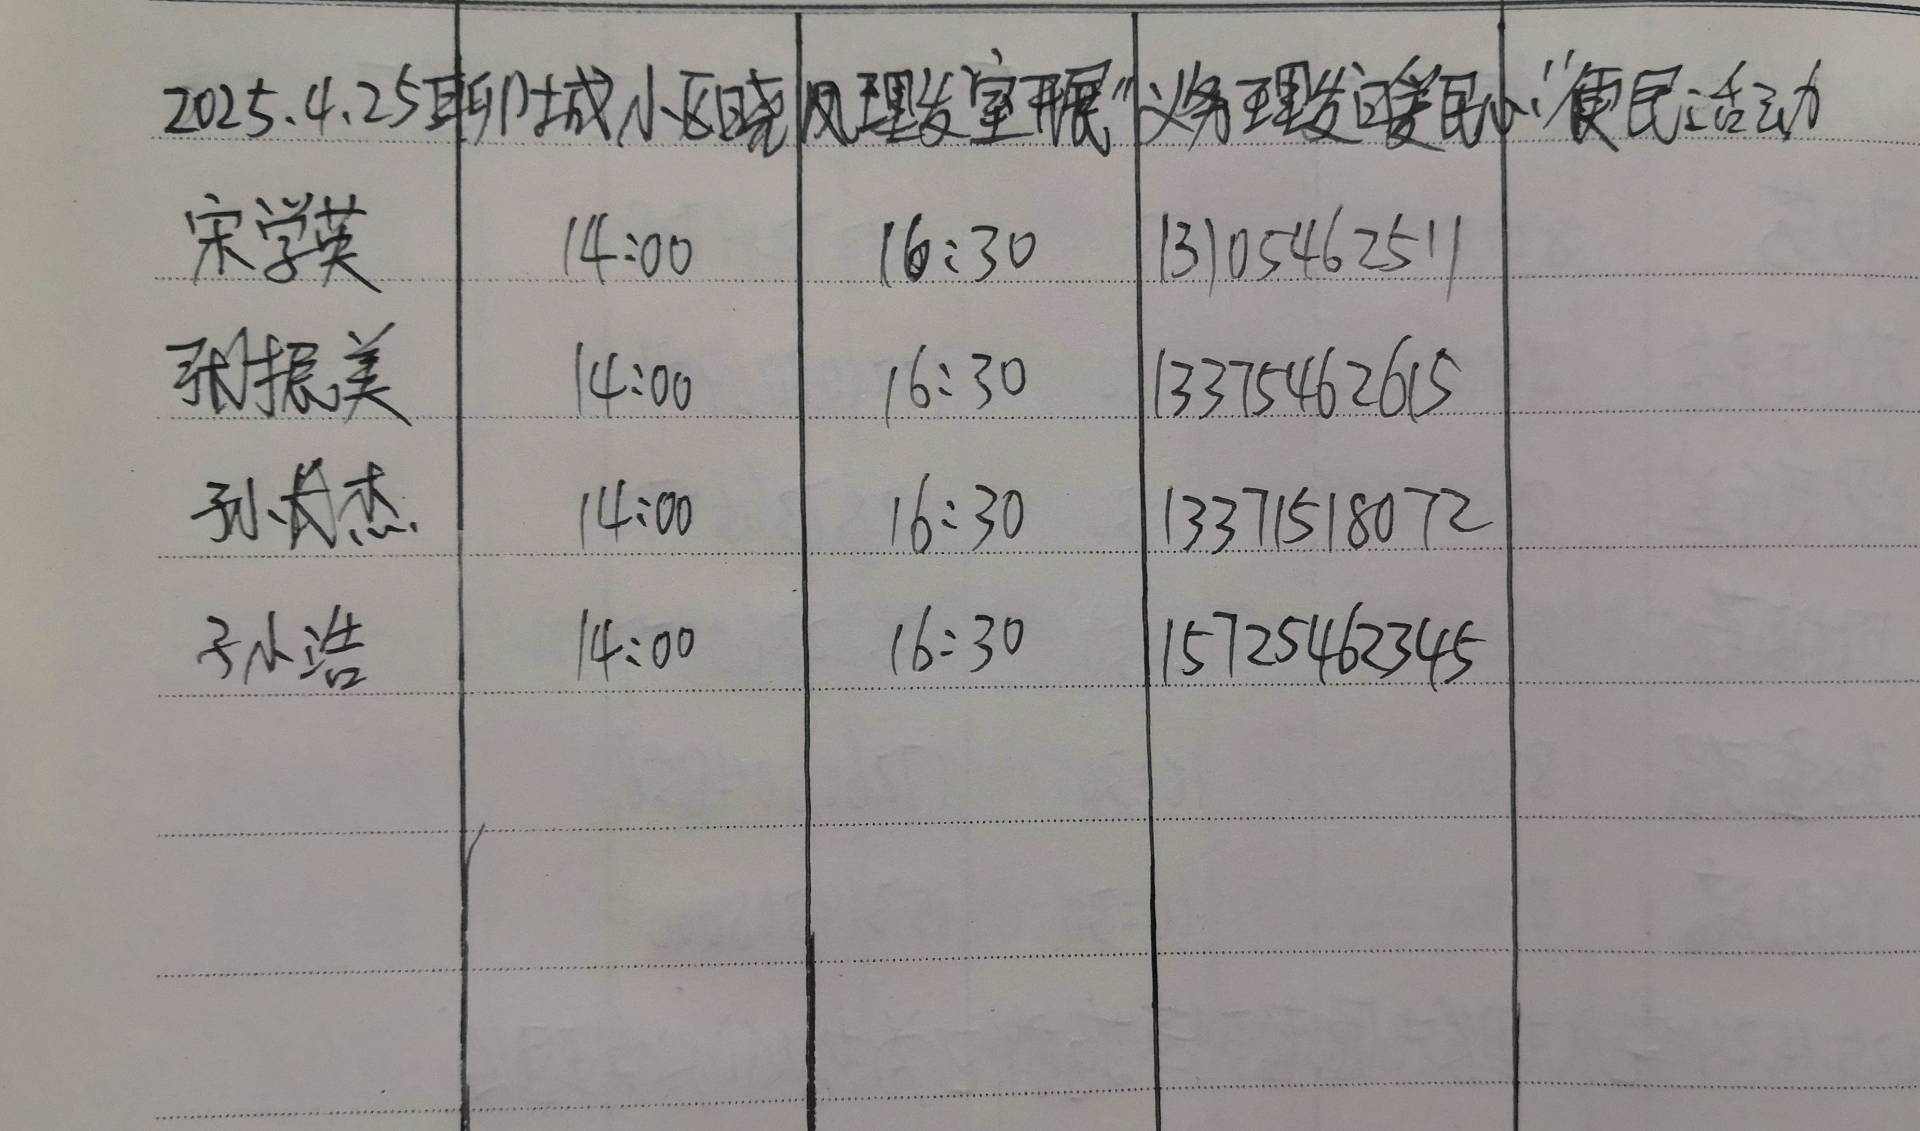 2025.4.25聊城小区晓风理发室开展"义务理发日暖民心"便民活动
宋学英 14:00 16:30 13105462511
张振美 14:00 16:30 13375462615
孙 杰 14:00 16:30 13371518072
孙小浩 14:00 16:30 15725462345